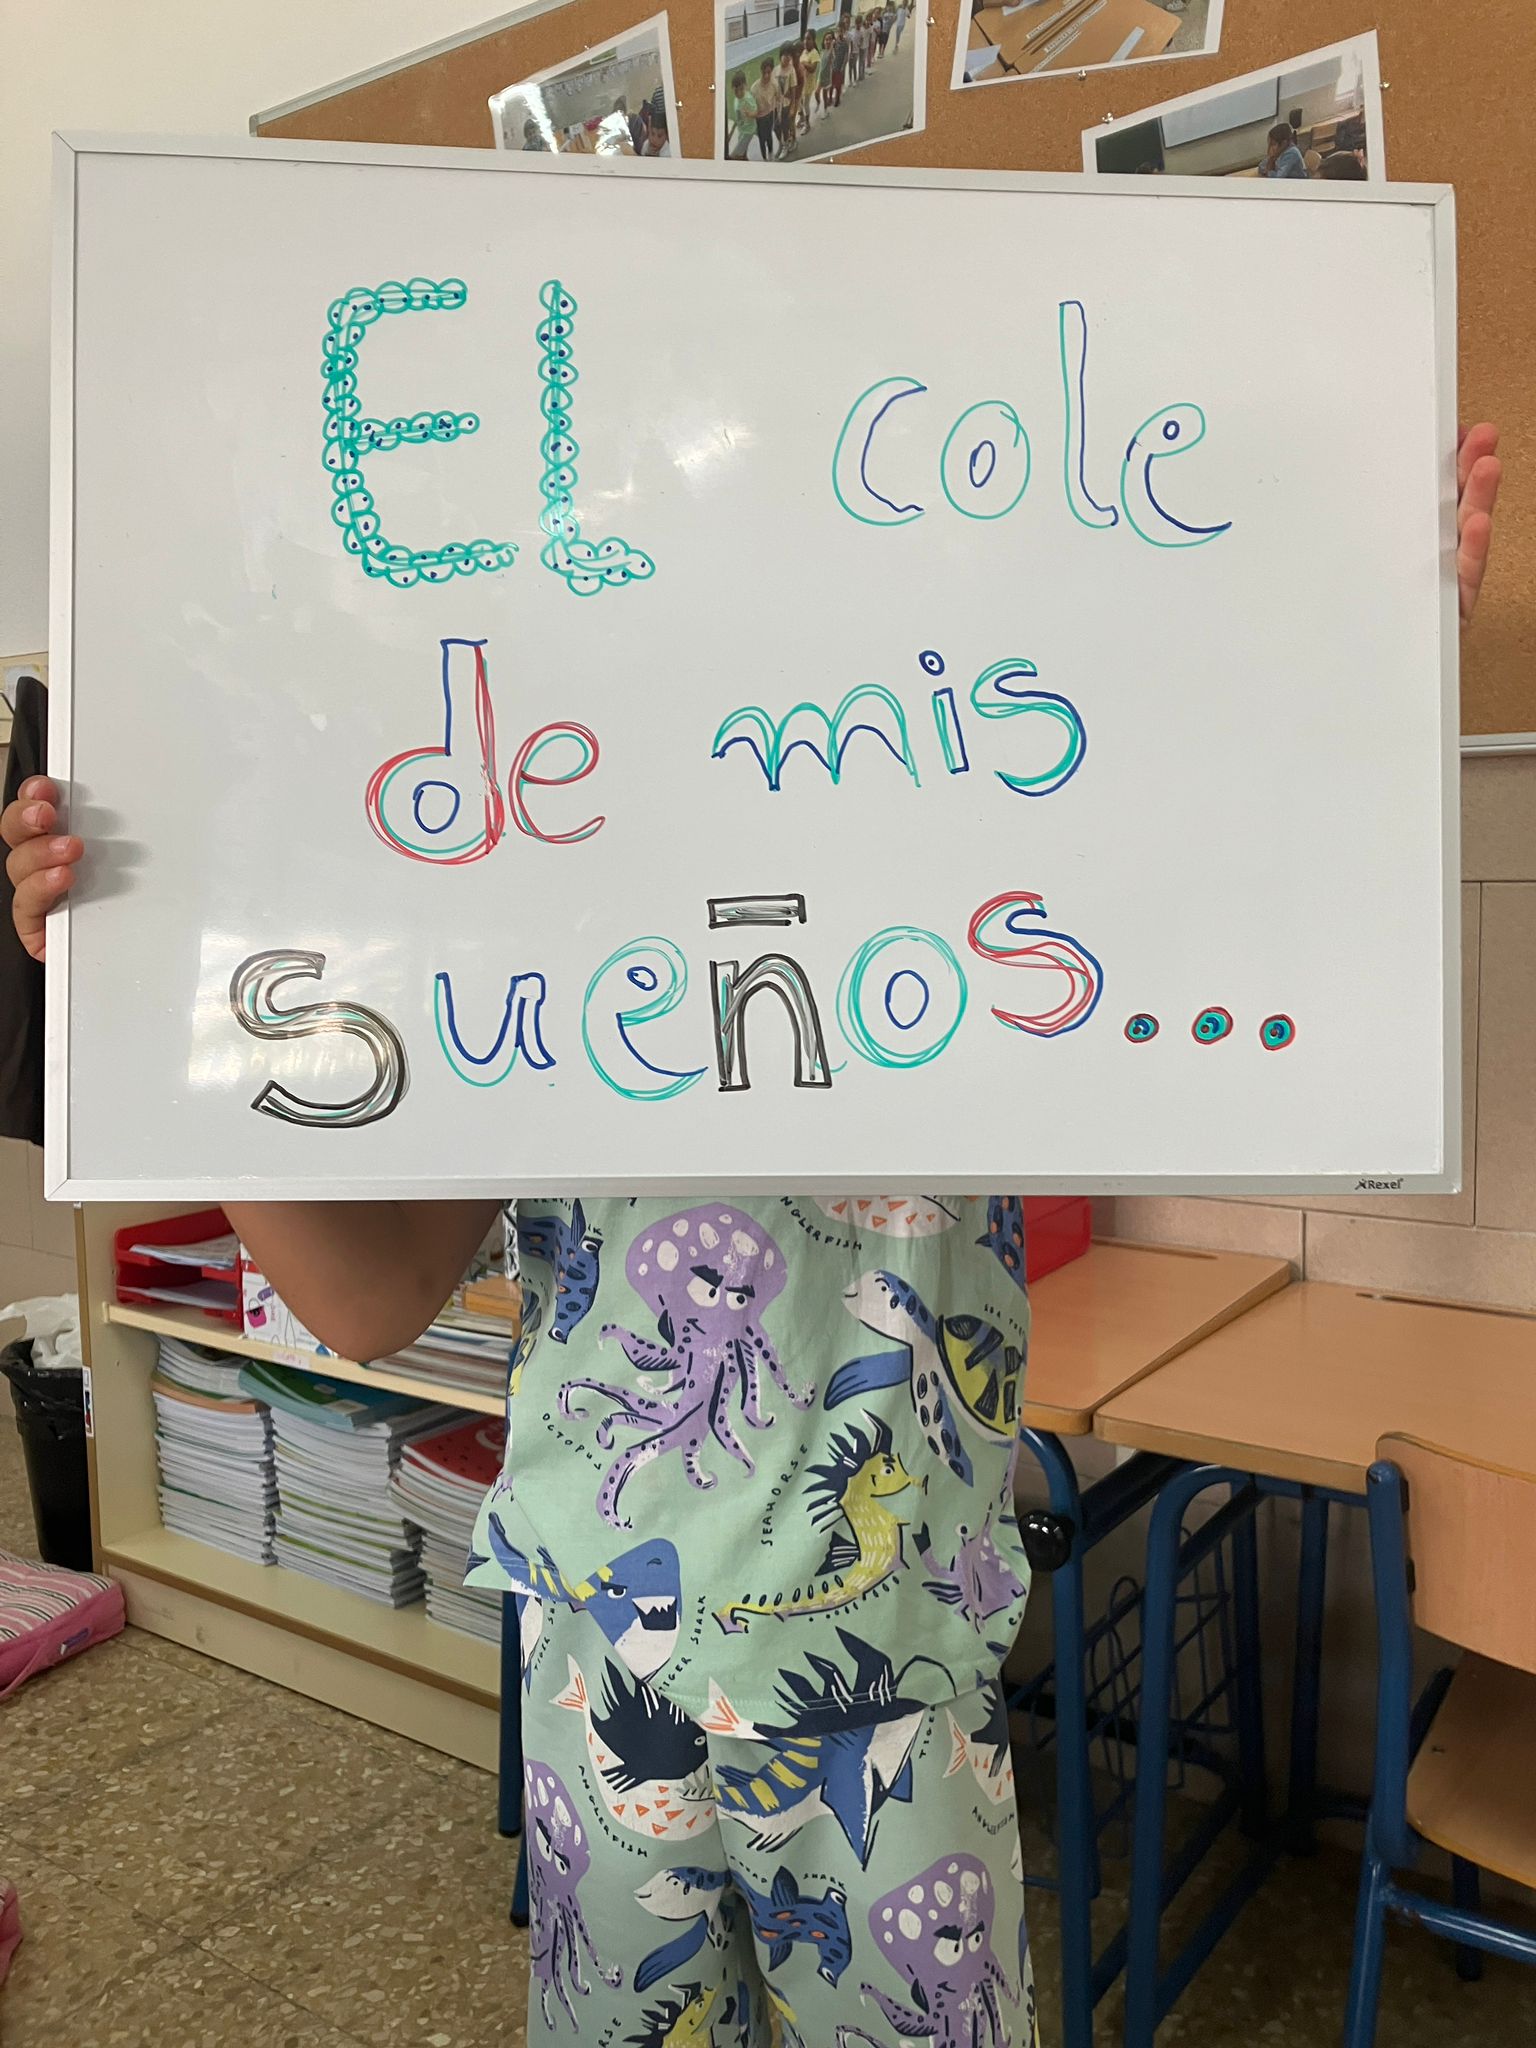 EL cole
de mis
sueños...
Rexel
ANGLERFISH
OCTOPUS
SEAHORSE
TIGER SHARK
ANGLERFISH
SHARK
ANGLERFISH